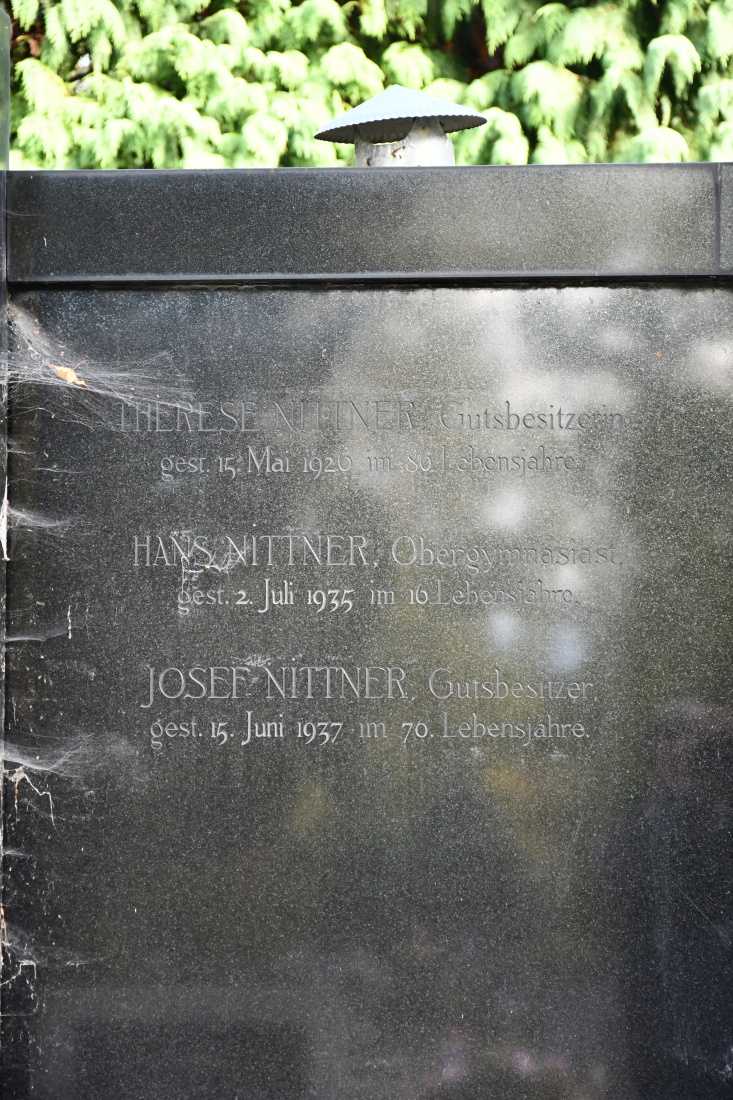 THERESE NITTNER, Gutsbesitzerin,
gest. 15. Mai 1926 im 86. Lebensjahre.
HANS NITTNER, Obergymnasiast
gest. 2. Juli 1935 im 16. Lebensjahre.
JOSEF NITTNER, Gutsbesitzer
gest. 15. Juni 1937 im 76. Lebensjahre.